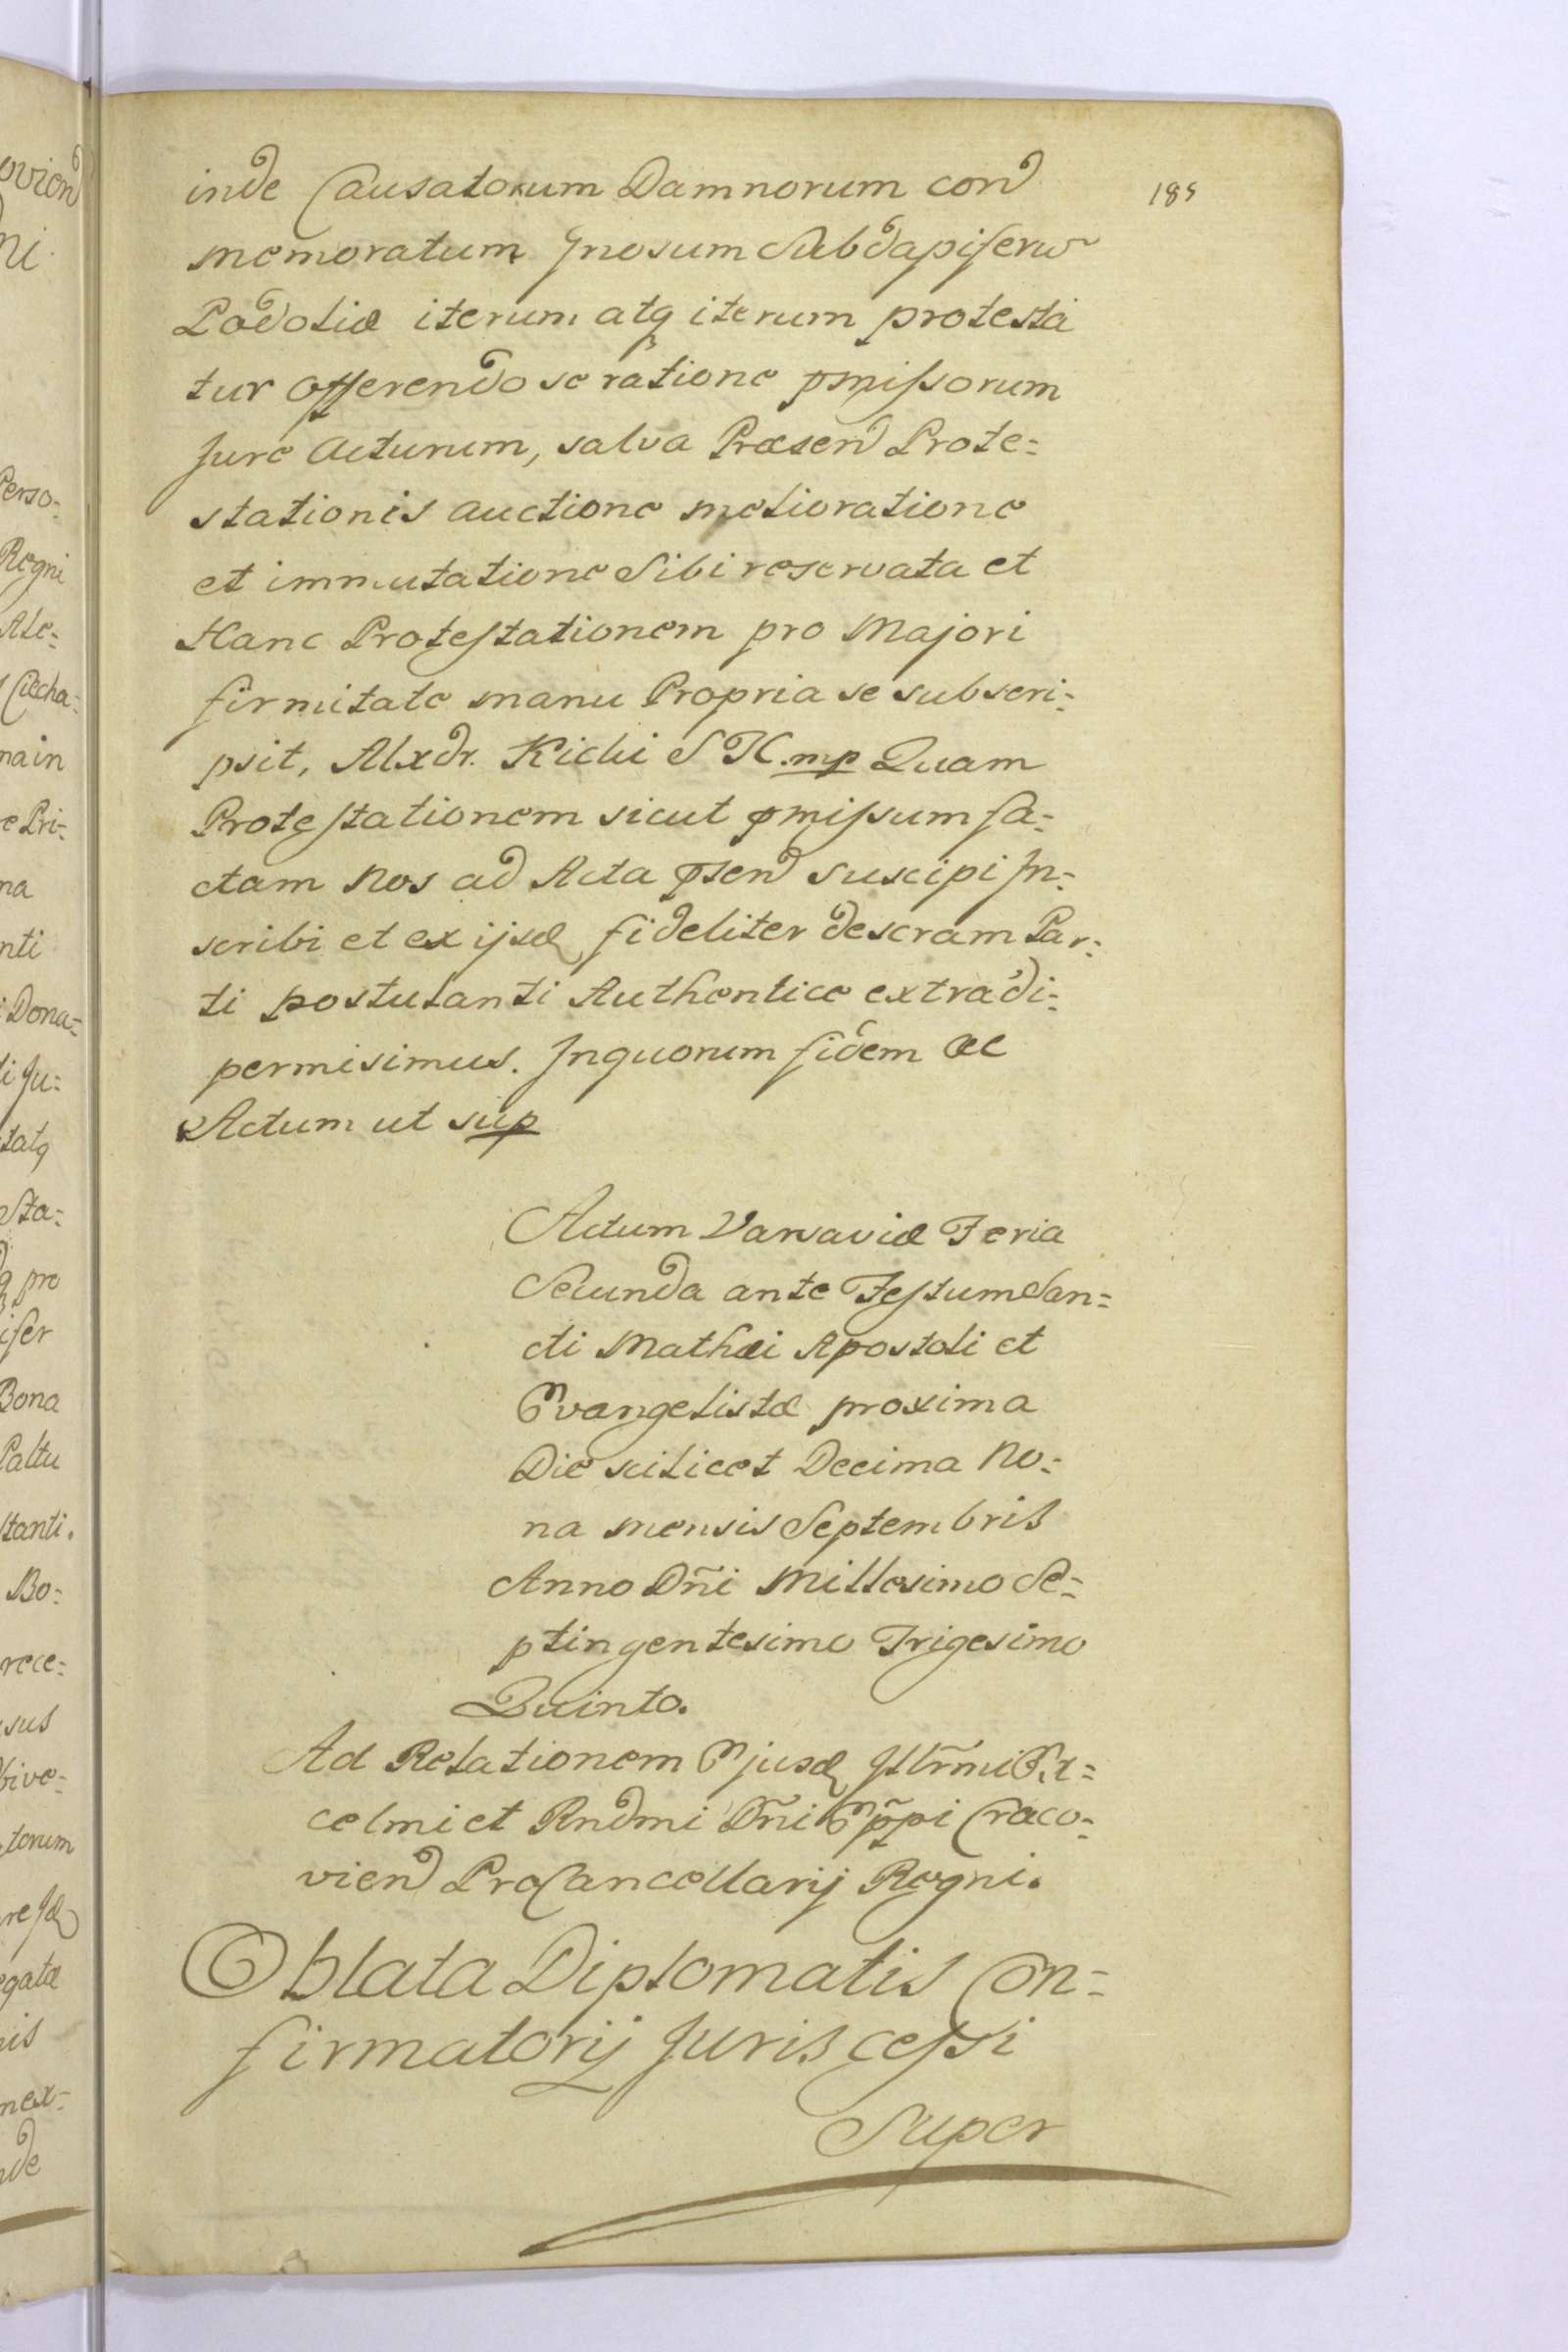 185
inde Causatorum Damnorum cond
memoratum Gnosum Subdapiferum
Podoliæ iterum atq iterum protesta
tur offerendo se ratione pmissorum
Jure Acturum, salva Præsend Prote=
stationis auctione melioratione
et immutatione Sibi reservata et
Hanc Protestationem pro Majori
firmitate manu Propria se subscri=
psit, Alxdr. Kicki S K mp Quam
Protestationem sicut pmissum fa=
ctam Nos ad Acta psend suscipi In=
scribi et ex ijsd fideliter descram Par=
ti postulanti Authentice extradi=
permisimus. Inquorum fidem &c
Actum ut sup
Actum Varsaviæ Feria
Secunda ante Festum San=
cti Mathæi Apostoli et
Evangelistæ proxima
Die scilicet Decima No=
na mensis Septembris
Anno Dñi Millesimo Se=
ptingentesimo Trigesimo
Quinto.
Ad Relationem Ejusd Illrmi Ex=
celmi et Rndmi Dñi Eppi Craco=
viend ProCancellarij Regni.
Oblata Diplomatis Con=
firmatorij Juris cessi
Super